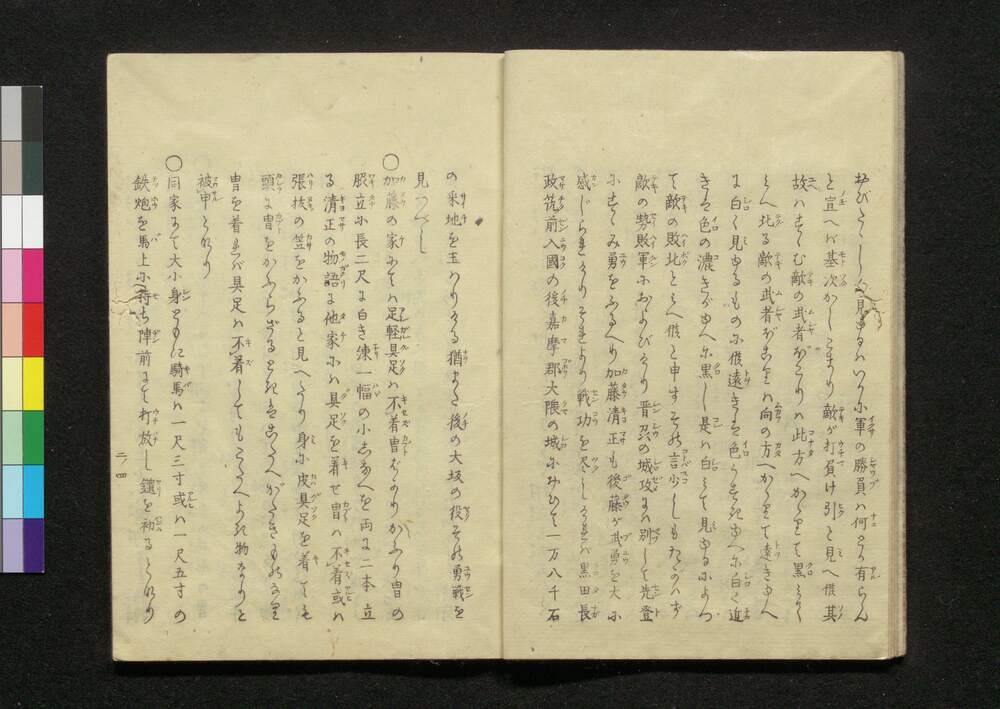 おびたゝしく見ゆるはいかに軍の勝負は何とか有らん
と宣へば基次かしこまり敵が打負け引と見へ候其
故はすゝむ敵の武者ぼこりは此方へかゝりて黒く
候へ北る敵の武者ぼこりは向の方へかゝりて遠きゆへ
に白く見ゆるものに候遠きは色うすきゆへに白く近
きは色の濃きがゆへに黒し是は白くて見ゆるによつ
て敵の敗北と候へ候と申す其言少しもたがはず
敵の勢敗軍におよびけり晋州の城攻には別して先登
にすゝみ勇をふるへり加藤清正も後藤が武勇を大に
感じられけりそれより戦功を尽しければ黒田長
政筑前入國の後嘉摩郡大隈の城において一万八千石
の采地を玉はりける猶また後の大坂の役その勇戦を
見つべし
○加藤の家にては足軽具足は不着冑ばかりかふり冑の
脇立に長二尺に白き練一幅の小しなへを両に二本立
る清正の物語に他家には具足を着せ冑は不着或は
張抜の笠をかふると見へたり身に皮具足を着ても
頭に冑をかふらざるときはこたへがたきものなり
冑を着れば具足は不着してもこたへよき物なりと
被申となり
○同家にて大小身ともに騎馬は一尺三寸或は一尺五寸の
鉄炮を馬上に持せ陣前にて打放し鑓を初るとなり
二ノ四